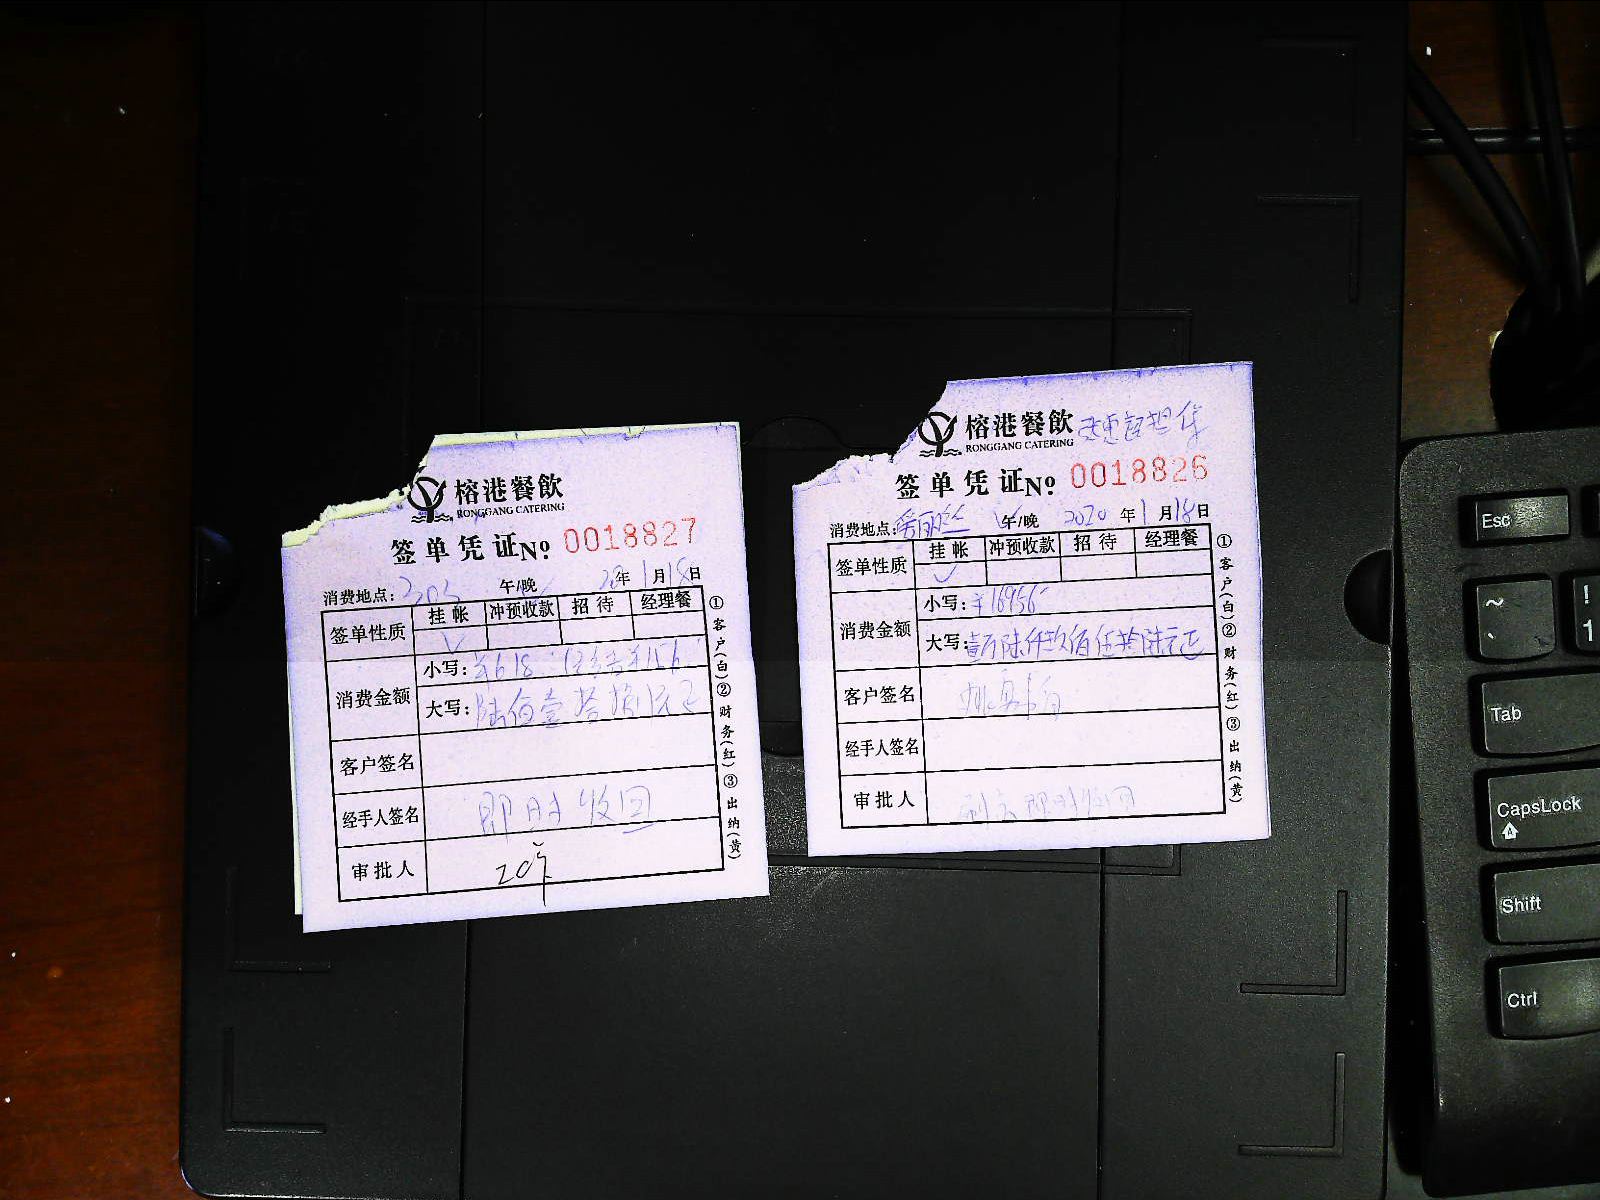 榕港餐飲
RONGGANG CATERING
签单凭证№ 0018827
消费地点: 303 午/晚 20年1月18日
签单性质 挂帐 冲预收款 招待 经理餐
消费金额
小写: ¥618
大写: 陆佰壹拾捌元正
客户签名
经手人签名 即时收回
审批人
①客户(白)②财务(红)③出纳(黄)
榕港餐飲
RONGGANG CATERING
签单凭证№ 0018826
消费地点: 午/晚 2020年1月18日
签单性质 挂帐 冲预收款 招待 经理餐
消费金额
小写: ¥16956
大写: 壹万陆仟玖佰伍拾陆元正
客户签名
经手人签名
审批人 即时收回
①客户(白)②财务(红)③出纳(黄)
Esc
~
`
!
1
Tab
CapsLock
Shift
Ctrl